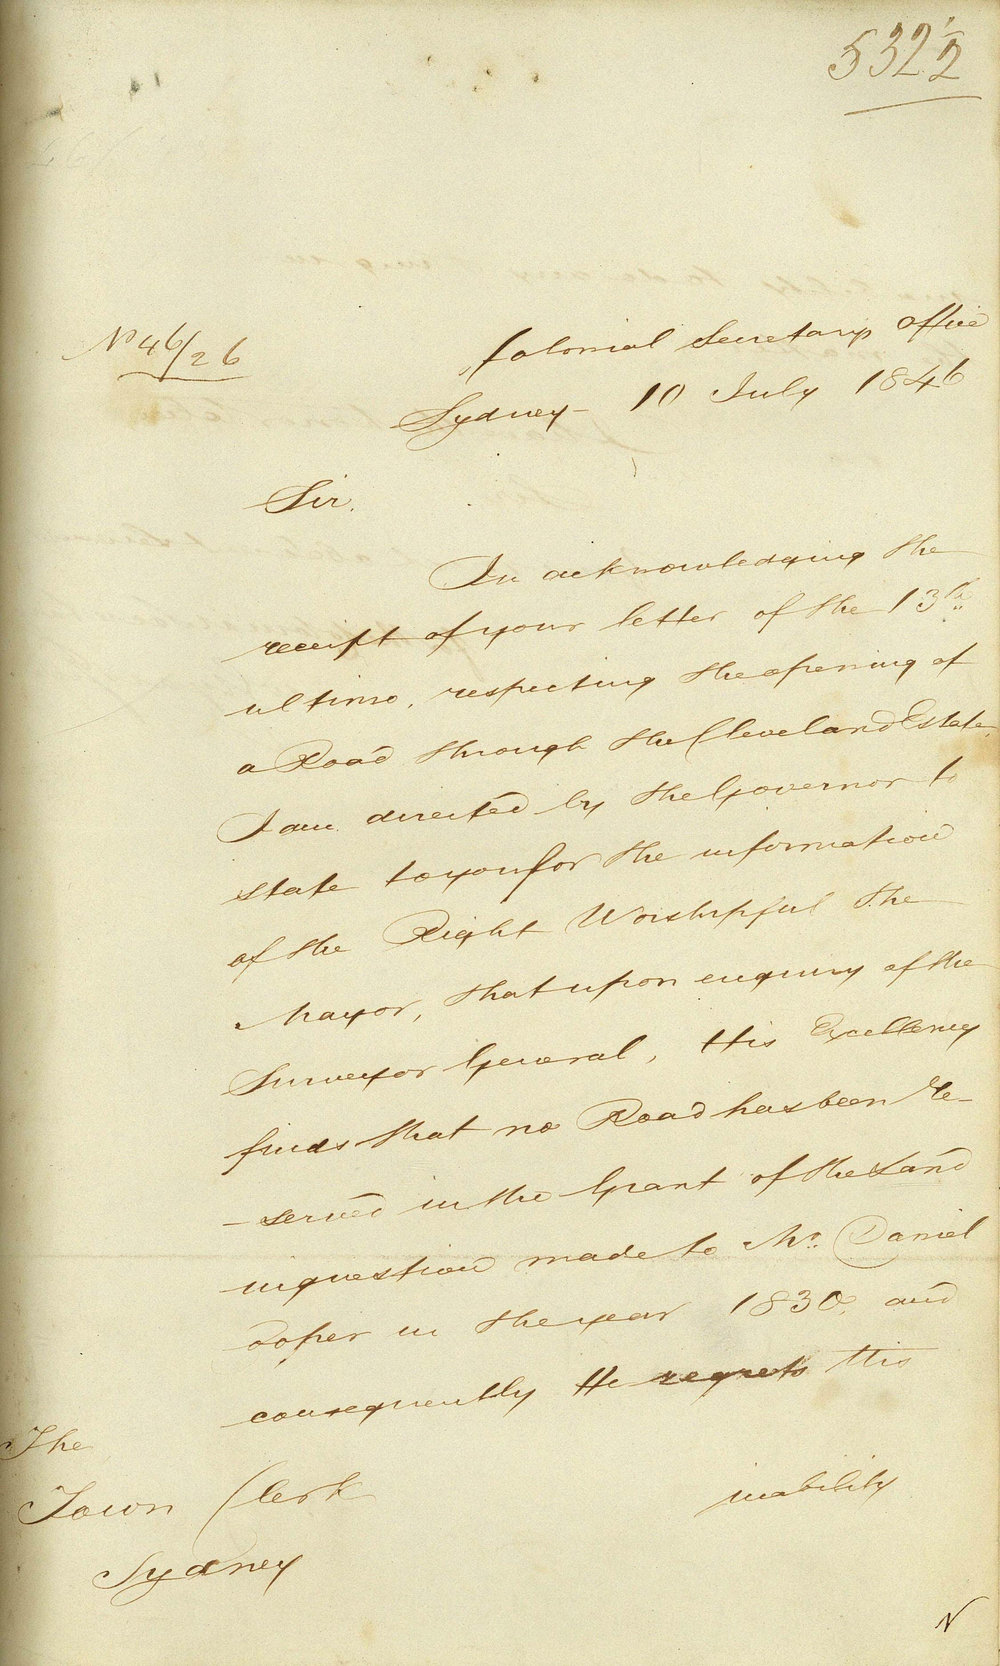 532½
Colonial Secretarys Office
No 46/26
Sydney - 10 July 1846
Sir.
In acknowledging the
receipt of your letter of the 13th
ultimo, respecting the opening of
a Road through the Cleveland Estate,
I am directed by the Governor to
state to you for the information
of the Right Worshipful the
Mayor, that upon enquiry of the
Surveyor General, His Excellency
finds that no Road has been Re-
-served in the Grant of the Land
in question made to Mr. Daniel
Cooper in the year 1830, and
consequently He regrets His
inability
The
Town Clerk
Sydney